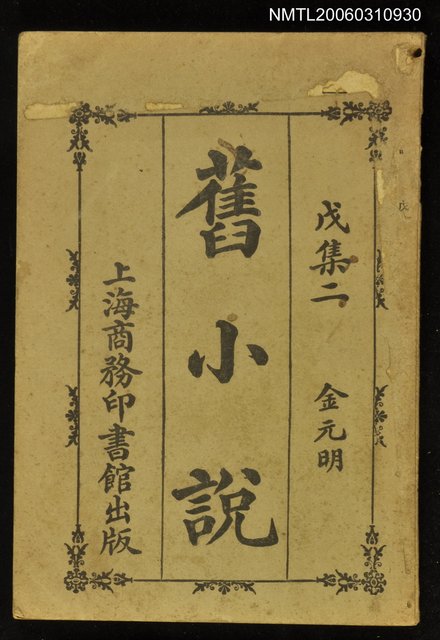 NMTL20060310930
戊集二 金元明
舊小說
上海商務印書館出版